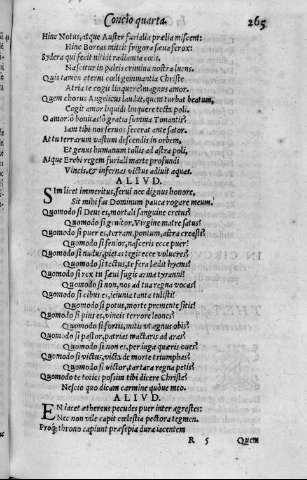 Concio quarta. 265
Hinc Notus, atque Auster furialia prælia miscent:
Hinc Boreas mittit frigora sæua ferox:
Sydera qui fecit nitidi radiantia cœli,
Nascitur in paleis crimina nostra luens.
Qui tamen æterni cœli gemmantis Christe
Atria te cogit linquere magnus amor.
Quem chorus Angelicus laudat, quem turbat beatum,
Cogit amor liquidi linquere tecti poli.
O amor ô bonitas! ô gratia summa Tonantis!
Iam tibi nos seruos fecerat ante sator.
At tu terrarum vastum descendis in orbem,
Et genus humanum tollis ad astra poli,
Atque Erebi regem furiali mante profundi
Vincis, & infernas victus adiuit aquas.
ALIVD.
SIm licet immeritus, serui nec dignus honore,
Sit mihi fas Dominum pauca rogare meum.
Quomodo si Deus es, mortali sanguine cretus?
Quomodo si genitor, Virgine matre satus?
Quomodo si puer es, terram, pontum, astra creasti?
Quomodo si senior, nasceris ecce puer?
Quomodo si nudus, pietas tegit ecce volucres?
Quomodo si tectus, te fera lædit hyems?
Quomodo si rex tu sæui fugis arma tyranni?
Quomodo si non, nos ad tua regna vocas?
Quomodo si cibus es, ieiunia tanta tulisti?
Quomodo si potus, morte premente sitis?
Quomodo si pius es, vincis terrore leones?
Quomodo si fortis, mitis vt agnus obis?
Quomodo si pastor, patrias mactaris ad aras?
Quomodo si non es, per iuga quæris oues?
Quomodo si victus, victa de morte triumphas?
Quomodo si victor, tartara regna petis?
Quomodo te toties possim tibi dicere Christe?
Nescio quo dicam carmine quibue meo.
ALIVD.
EN iacet æthereus pecudes puer inter agrestes:
Nec non vile capit cœlestia pectora tegmen.
Proque throno capiunt præsepia dura iacentem
R 5 Quem